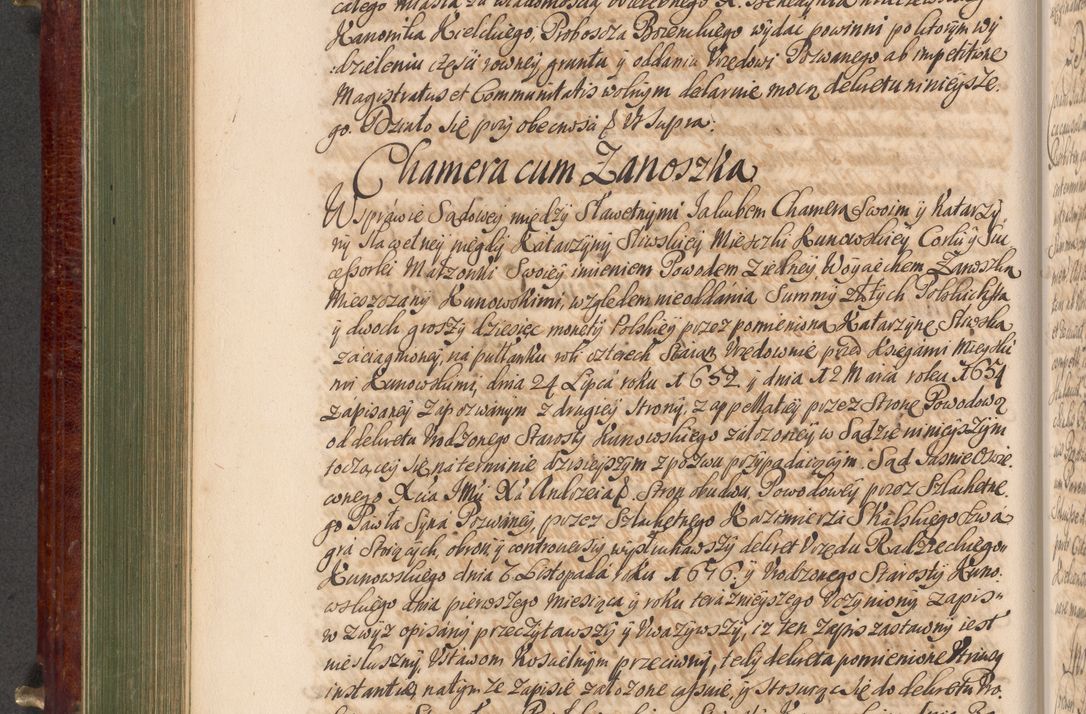 całego miasta za wiadomością
Kanonika Kieleckiego, Proboszcza Bozenckiego wydać powinni po ktorym wy
dzieleniu części rowney gruntu y oddaniu Vrzędowi Pozwanego ab impetitione
Magistratus et Communitatis wolnym deklaruie mocą dekretu ninieysze
go. Działo się przy obecności & Vt Supra.
Chamera cum Zanoszka
W sprawie Sądowey między Sławetnymi Jakubem Chamera Swoim y Katarzy
ny sławetney niegdy Katarzyny Sliwskiey Mieszki Kunowskiey Corki y Suk
cessorki Małzonki Swoiey imieniem Powodem z iedney, Woyciechem Zanoszka
Mieszczany Kunowskimi, względem nieoddania Summy złtych Polskich sta
y dwoch groszy dziesięc monety Polskiey przez pomieniona Katarzynę Sliwska
zaciągnioney, na pułłanku roli czterech Staian Vrzędownie przed Księgami Mieyski
mi Kunowskimi, dnia 24 Lipca roku 1652 y dnia 12 Marca roku 1654
zapisaney Zapozwanym z drugiey strony, z appellatiey przez Stronę Powodową
od dekretu Vrodzonego Starosty Kunowskiego załozoney w Sądzie ninieyszym
toczącey się na terminie dzisieyszym z pozwu przypadaiącym. Sąd Jasnie Oswie
conego Xcia JMci Xa Andrzeia &. Stron obudwu, Powodowey przez Szlachetne
go Pawła Syna Pozwaney, przez Szlachetnego Kazimierza Skalskiego Szwa
gra Stoiących, obron, y controwersiy wysłuchawszy dekret Vrzędu Radzieckiego
Kunowskiego dnia 6 Listopada roku 1676 y Vrodzonego Starosty Kuno
wskiego dnia pierwszego miesiąca y roku teraznieyszego Vczyniony zapis
w zwyz opisany przeczytawszy y Vwazywszy, iz ten Zapis zastawny iest
niesłuszny, Vstawom Koscielnym przeciwny, tedy dekreta pomienione Vtriusq
instantiae na tym ze Zapisie załozone cassuie, y stosuiąc się do dekretu Pro